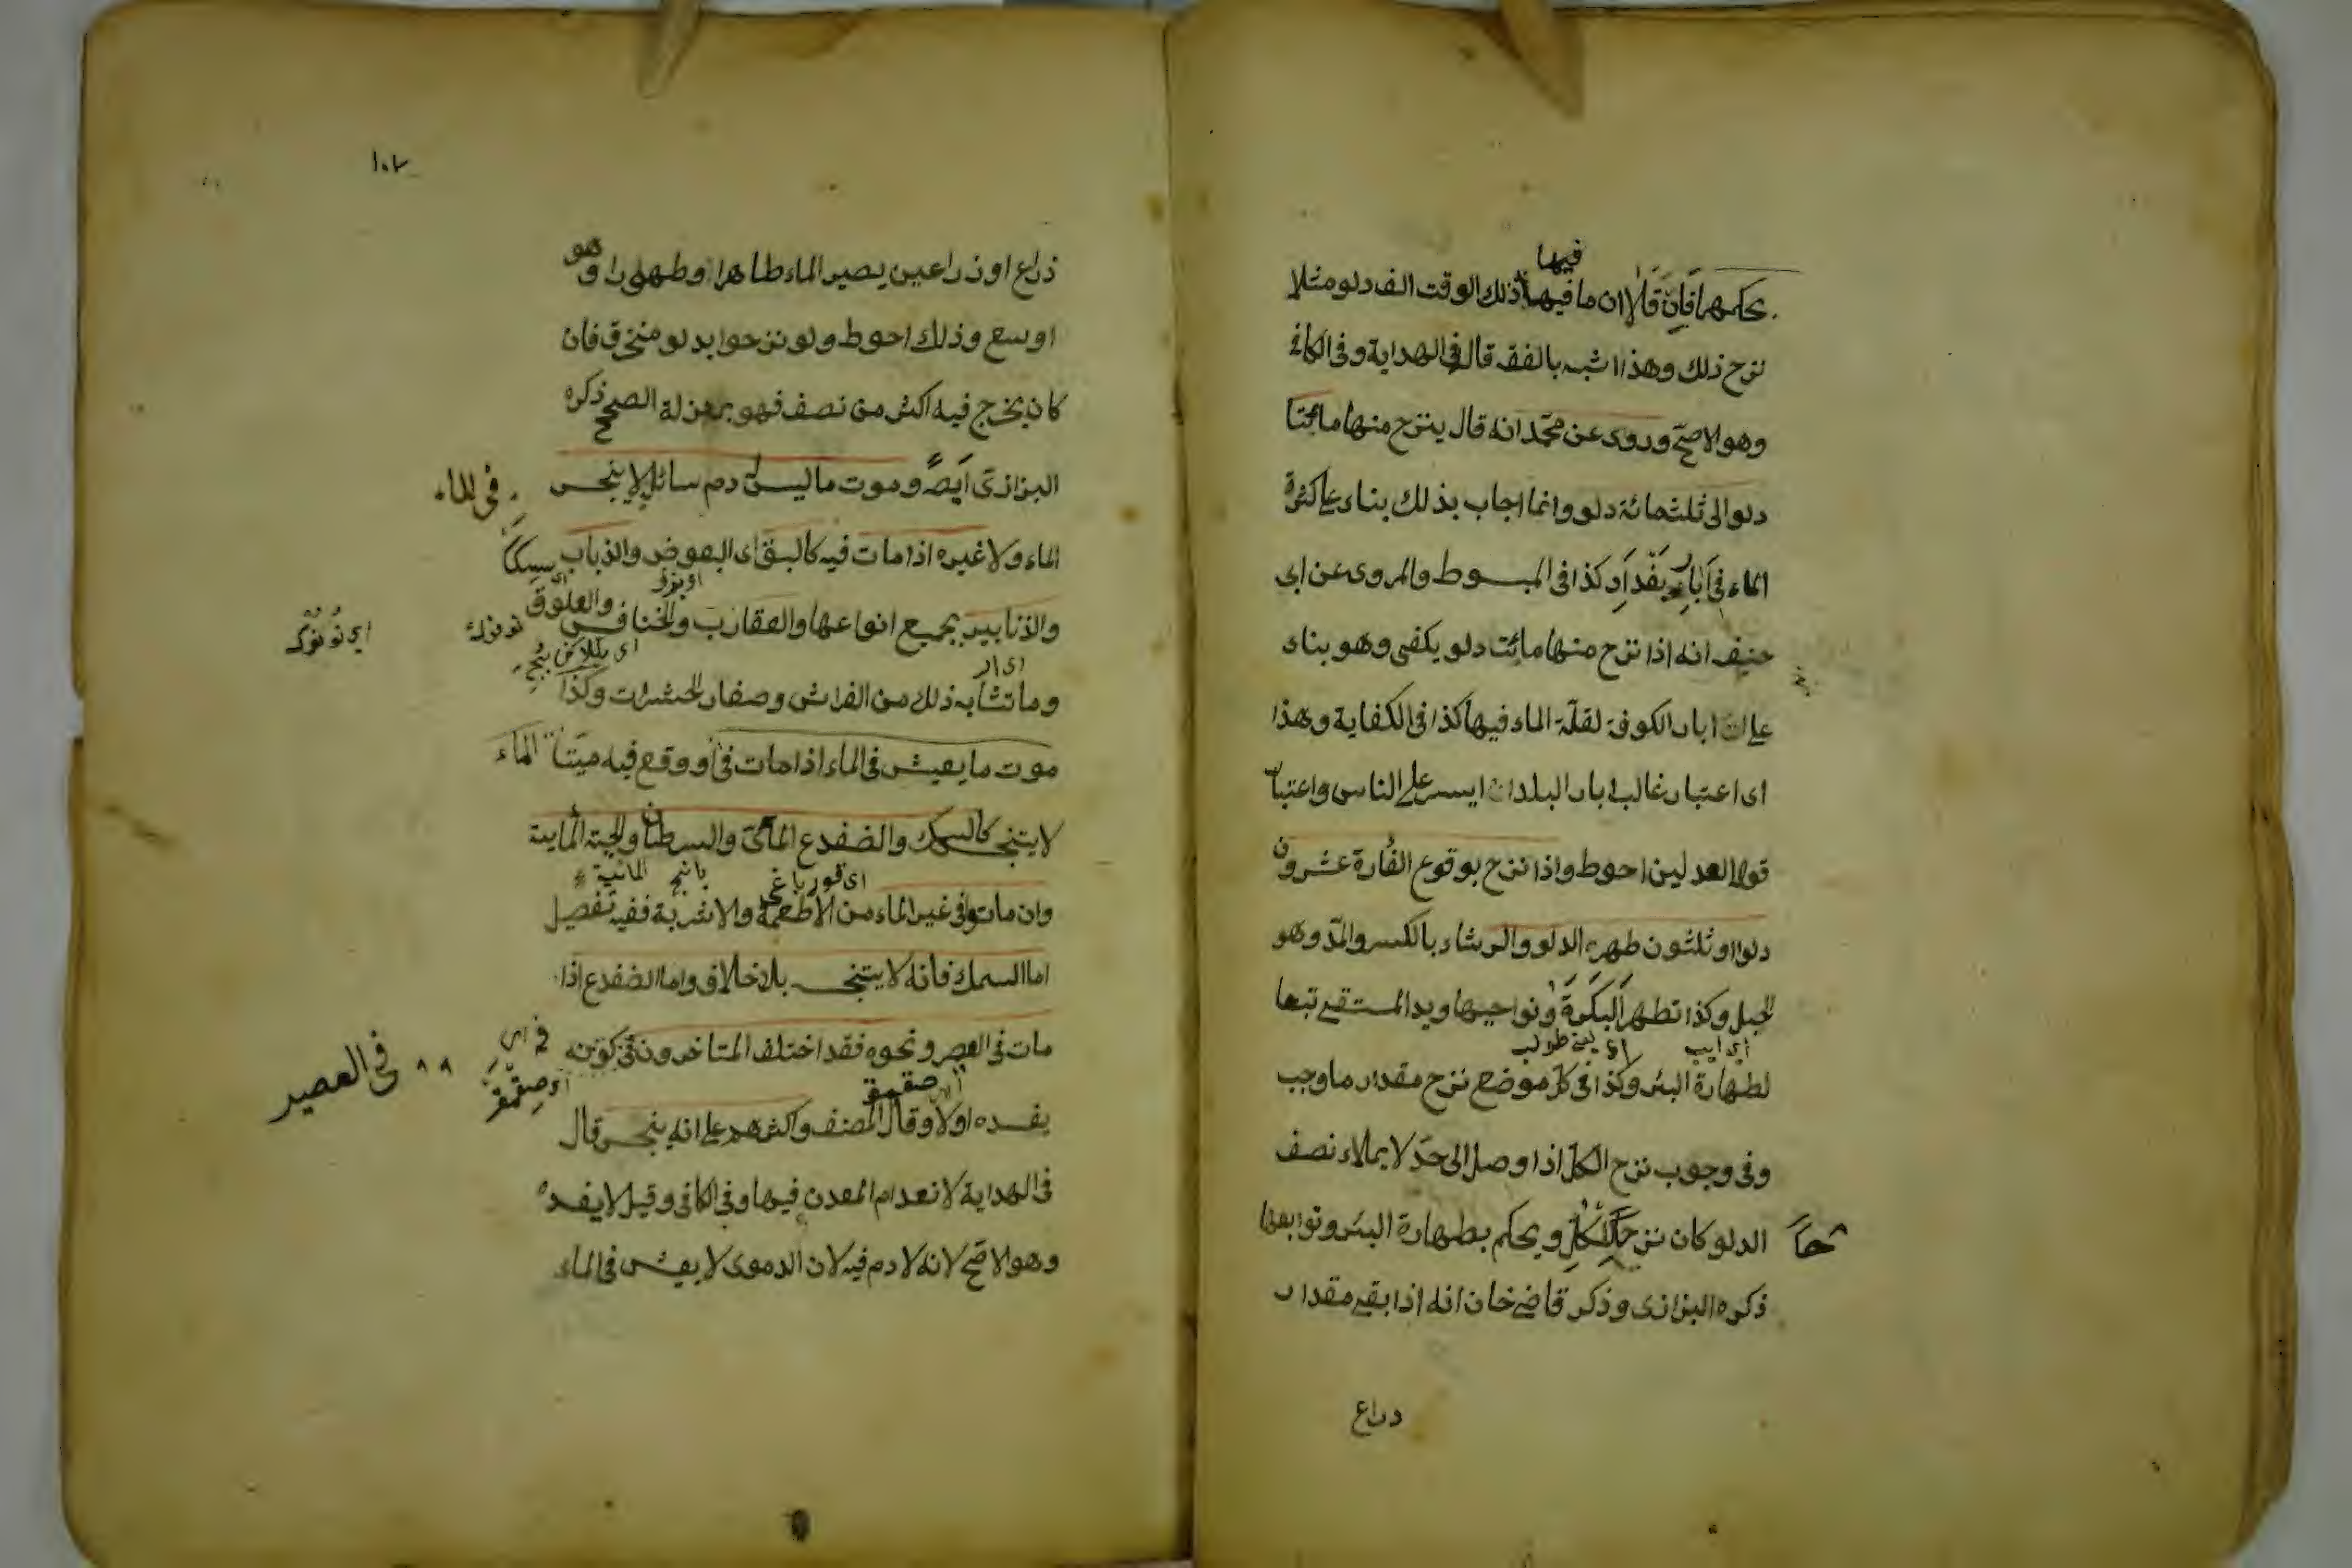 فيها
يحكمهما فان قالا ان ما فيها ذلك الوقت الف دلو مثلا
نزح ذلك وهذا اشبه بالفقه قال في الهداية وفي الكافي
وهو الاصح وروى عن محمد انه قال ينزح منها مائتا
دلو الى ثلثمائة دلو وانما اجاب بذلك بناء على كثرة
الماء في آبار بغداد كذا في المبسوط والمروى عن ابي
حنيفة انه اذا نزح منها مائت دلو يكفى وهو بناء
على ان ابار الكوفة لقلة الماء فيها كذا في الكفاية وهذا
اى اعتبار غالب ابار البلدان ايسر على الناس واعتبار
قول العدلين احوط واذا نزح بوقوع الفأرة عشرون
دلوا او ثلثون طهر الدلو والرشاء بالكسر والمد وهو
الحبل وكذا تطهر البكرة ونواحيها ويد المستقي تبعا
اي ايب
لطهارة البئر وكذا في كل موضع نزح مقدار ما وجب
وفي وجوب نزح الكل اذا وصل الى حد لا يملاء نصف
الدلو كان نزحا للكل ويحكم بطهارة البئر وتوابعها
حا
ذكره البزازى وذكر قاضي خان انه اذا بقي مقدار
دراع
١٠٢
ذراع او ذراعين يصير الماء طاهرا وطهورا وهو
اوسع وذلك احوط ولو نزحوا بدلو منخرق فان
كان يخرج فيه اكثر من نصف فهو بمنزلة الصحيح ذكره
البزازى ايضا وموت ما ليس له دم سائل لا ينجس
في الماء
الماء ولا غيره اذا مات فيه كالبق اى البعوض والذباب
والزنابير بجميع انواعها والعقارب والخنافس والعلوق
وما تشابه ذلك من الفراش وصغار الحشرات وكذا
موت ما يعيش في الماء اذا مات في او وقع فيه ميتا الماء
لا يتنجس كالسمك والضفدع المائى والسرطان والحية المائية
المائية
وان مات في غير الماء من الاطعمة والاشربة ففيه تفصيل
اى قور باغه
اما السمك فانه لا يتنجس بلا خلاف واما الضفدع اذا
مات في العصير ونحوه فقد اختلف المتأخرون في كونه
في العصير
يفسده اولا وقال المصنف واكثرهم على انه ينجس قال
في الهداية لانعدام المعدن فيها وفي الكافي وقيل لا يفسده
وهو الاصح لانه لا دم فيه لان الدموى لا يعيش في الماء